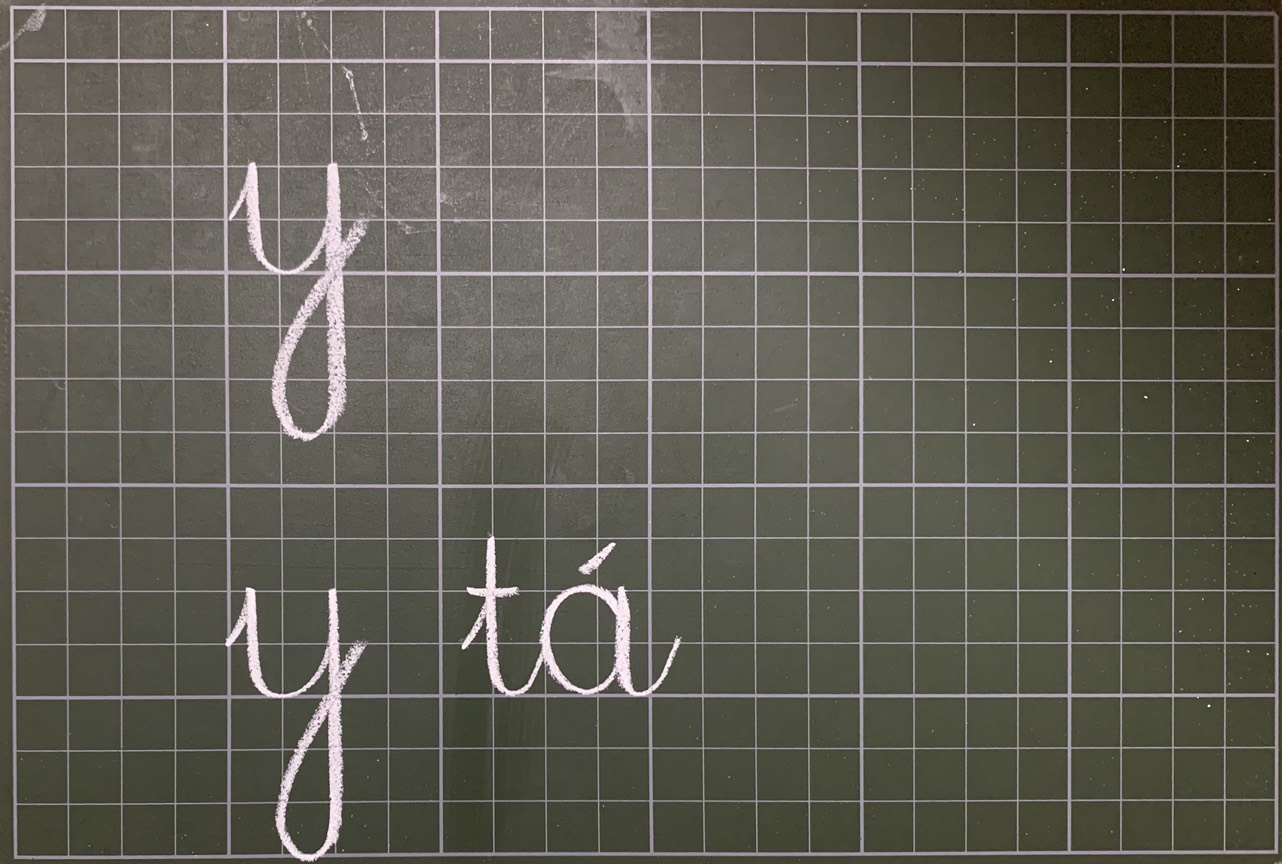 y
y tá